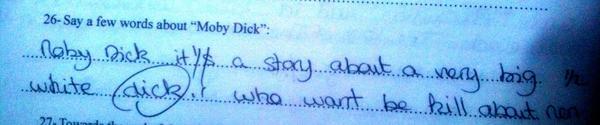 26- Say a few words about “Moby Dick”:
Moby Dick it's a story about a very big 1/2
white dick, who want be kill about men
27- Towards the